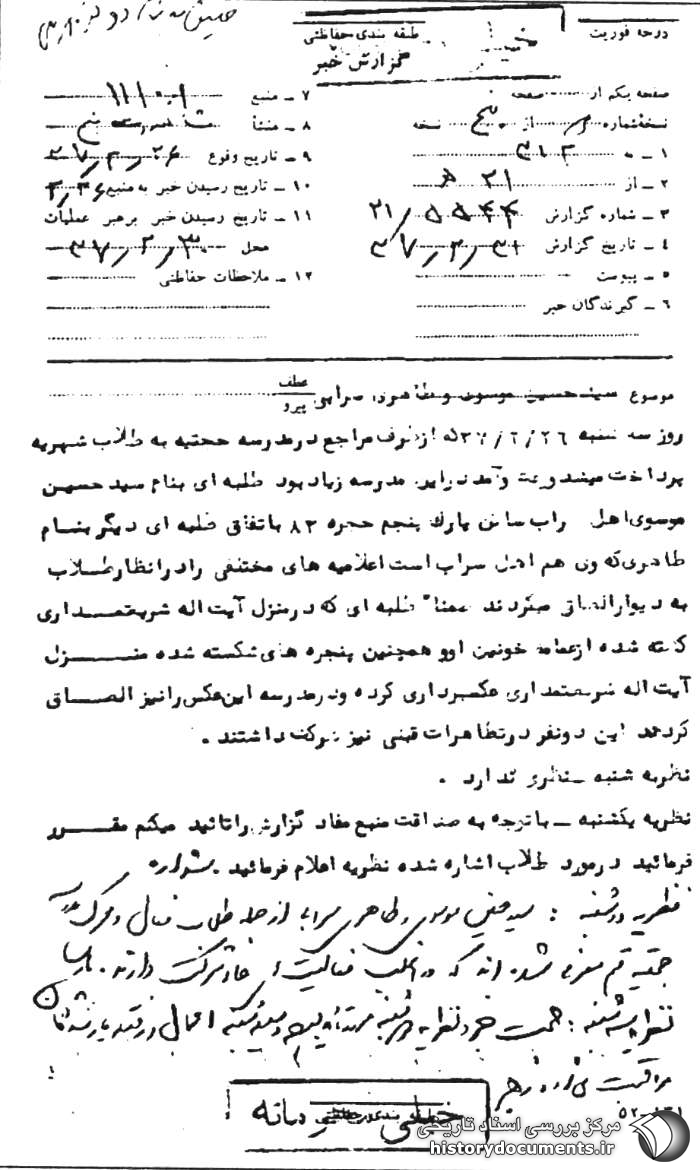 درجه فوریت
طبقه بندی حفاظتی
خیلی
گزارش خبر
صفحه یکم از صفحه
نسخه شماره از نسخه
۱ ـ به ۳۱۲
۲ ـ از ۲۱ ه
۳ ـ شماره گزارش ۲۱/۵۵۴۴
۴ ـ تاریخ گزارش ۳۷/۲/۳۱
۵ ـ پیوست
۶ ـ گیرندگان خبر
۷ ـ منبع ۱۱۰۰۱
۸ ـ منشأ
۹ ـ تاریخ وقوع ۳۷/۲/۲۶
۱۰ ـ تاریخ رسیدن خبر به منبع
۱۱ ـ تاریخ رسیدن خبر برهبر عملیات
محل ۳۷/۲/۳۰
۱۲ ـ ملاحظات حفاظتی
موضوع سید حسین موسوی و طاهری سرابی
عطف
پیرو
روز سه شنبه ۳۷/۲/۲۶ که از طرف مراجع در مدرسه حجتیه به طلاب شهریه
پرداخت میشد و رفت و آمد در این مدرسه زیاد بود طلبه ای بنام سید حسین
موسوی اهل سراب ساکن پارک پنجم حجره ۸۲ باتفاق طلبه ای دیگر بنام
طاهری که وی هم اهل سراب است اعلامیه های مختلفی را در انظار طلاب
به دیوار الصاق میکردند ضمناً طلبه ای که در منزل آیت اله شریعتمداری
کشته شده از عمامه خونین او و همچنین پنجره های شکسته شده منزل
آیت اله شریعتمداری عکسبرداری کرده و در مدرسه این عکس را نیز الصاق
کردند این دو نفر در تظاهرات قبلی نیز شرکت داشتند .
نظریه شنبه ـ نظری ندارد .
نظریه یکشنبه ـ با توجه به صداقت منبع مفاد گزارش را تائید میکنم مقرر
فرمائید در مورد طلاب اشاره شده نظریه اعلام فرمائید .
نظریه دوشنبه : سید حسین موسوی و طاهری سرابی از جمله طلاب فعال و محرک مدرسه
حجتیه قم معرفی شده اند که در اغلب فعالیت های حاد شرکت دارند .
نظریه سه شنبه : صحت خبر و نظریه دوشنبه مورد تأیید اعمال و رفتار یاد شدگان
مراقبت
خیلی محرمانه
طبقه بندی حفاظتی
مرکز بررسی اسناد تاریخی
historydocuments.ir